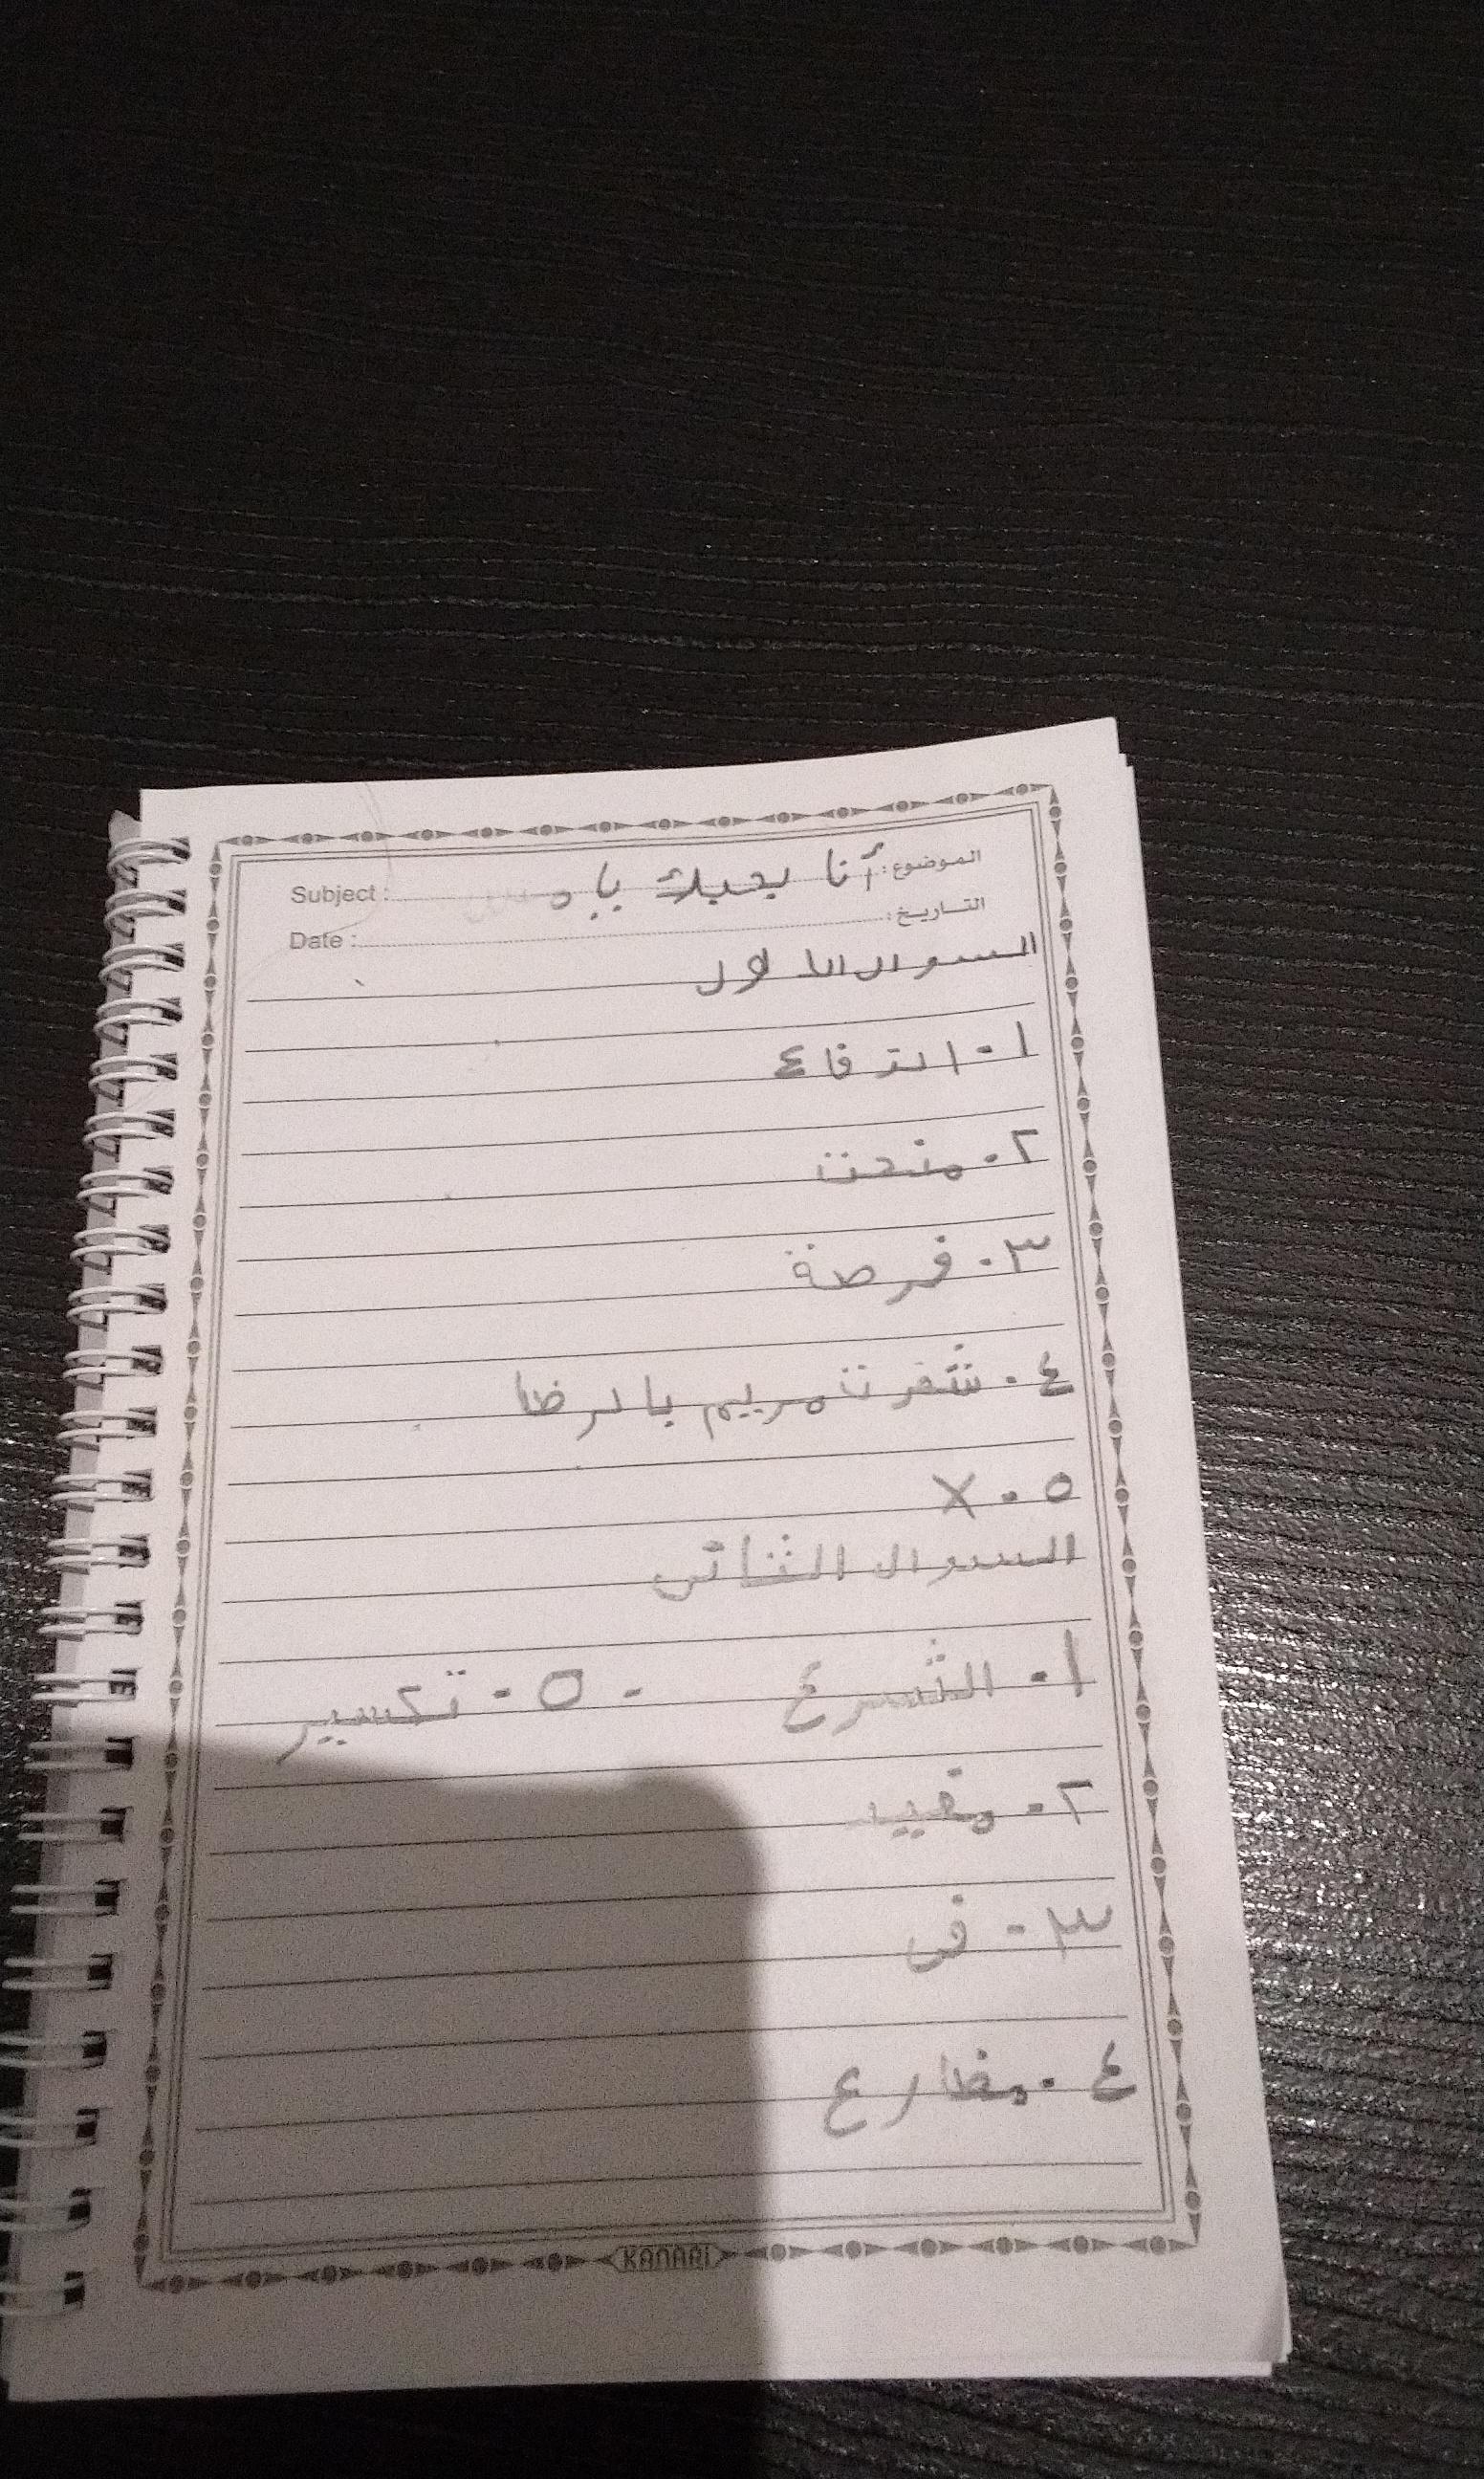 الموضوع: أنا بحبك يا Subject :
التاريخ: Date :
السوال الاول
١ - الترفاع
٢ - منحت
٣ - فرصة
٤ - شعرت مريم بالرضا
٥ - X
السوال الثاني
١ - التسرع - ٥ - تكسير
٢ - مقيد
٣ - في
٤ - مضارع
KANARI